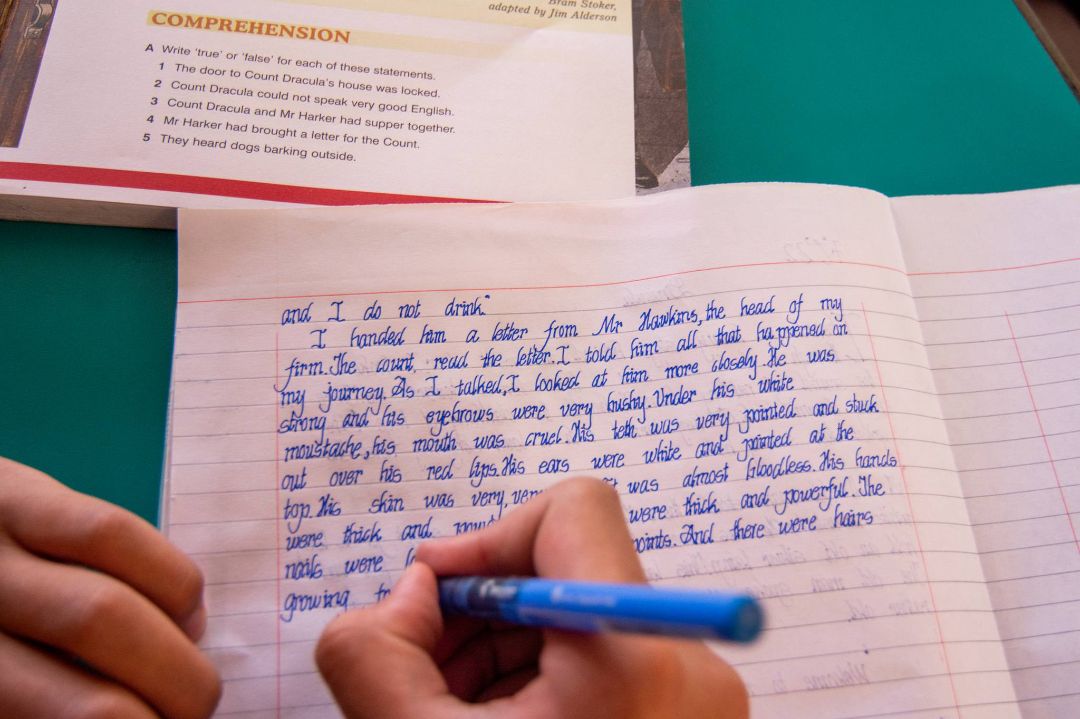 Bram Stoker,
adapted by Jim Alderson
COMPREHENSION
A Write 'true' or 'false' for each of these statements.
1 The door to Count Dracula's house was locked.
2 Count Dracula could not speak very good English.
3 Count Dracula and Mr Harker had supper together.
4 Mr Harker had brought a letter for the Count.
5 They heard dogs barking outside.
and I do not drink."
I handed him a letter from Mr Hawkins, the head of my
firm. The count, read the letter. I told him all that happened on
my journey. As I talked, I looked at him more closely. He was
strong and his eyebrows were very bushy. Under his white
moustache, his mouth was cruel. His teth was very pointed and stuck
out over his red lips. His ears were white and pointed at the
top. His skin was very, very was almost bloodless. His hands
were thick and were thick and powerful. The
nails were points. And there were hairs
growing